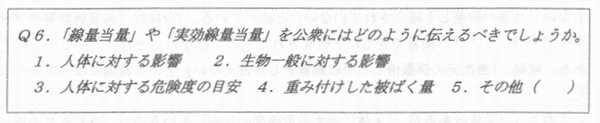 Q6．「線量当量」や「実効線量当量」を公衆にはどのように伝えるべきでしょうか。
1．人体に対する影響　2．生物一般に対する影響
3．人体に対する危険度の目安　4．重み付けした被ばく量　5．その他（　　）